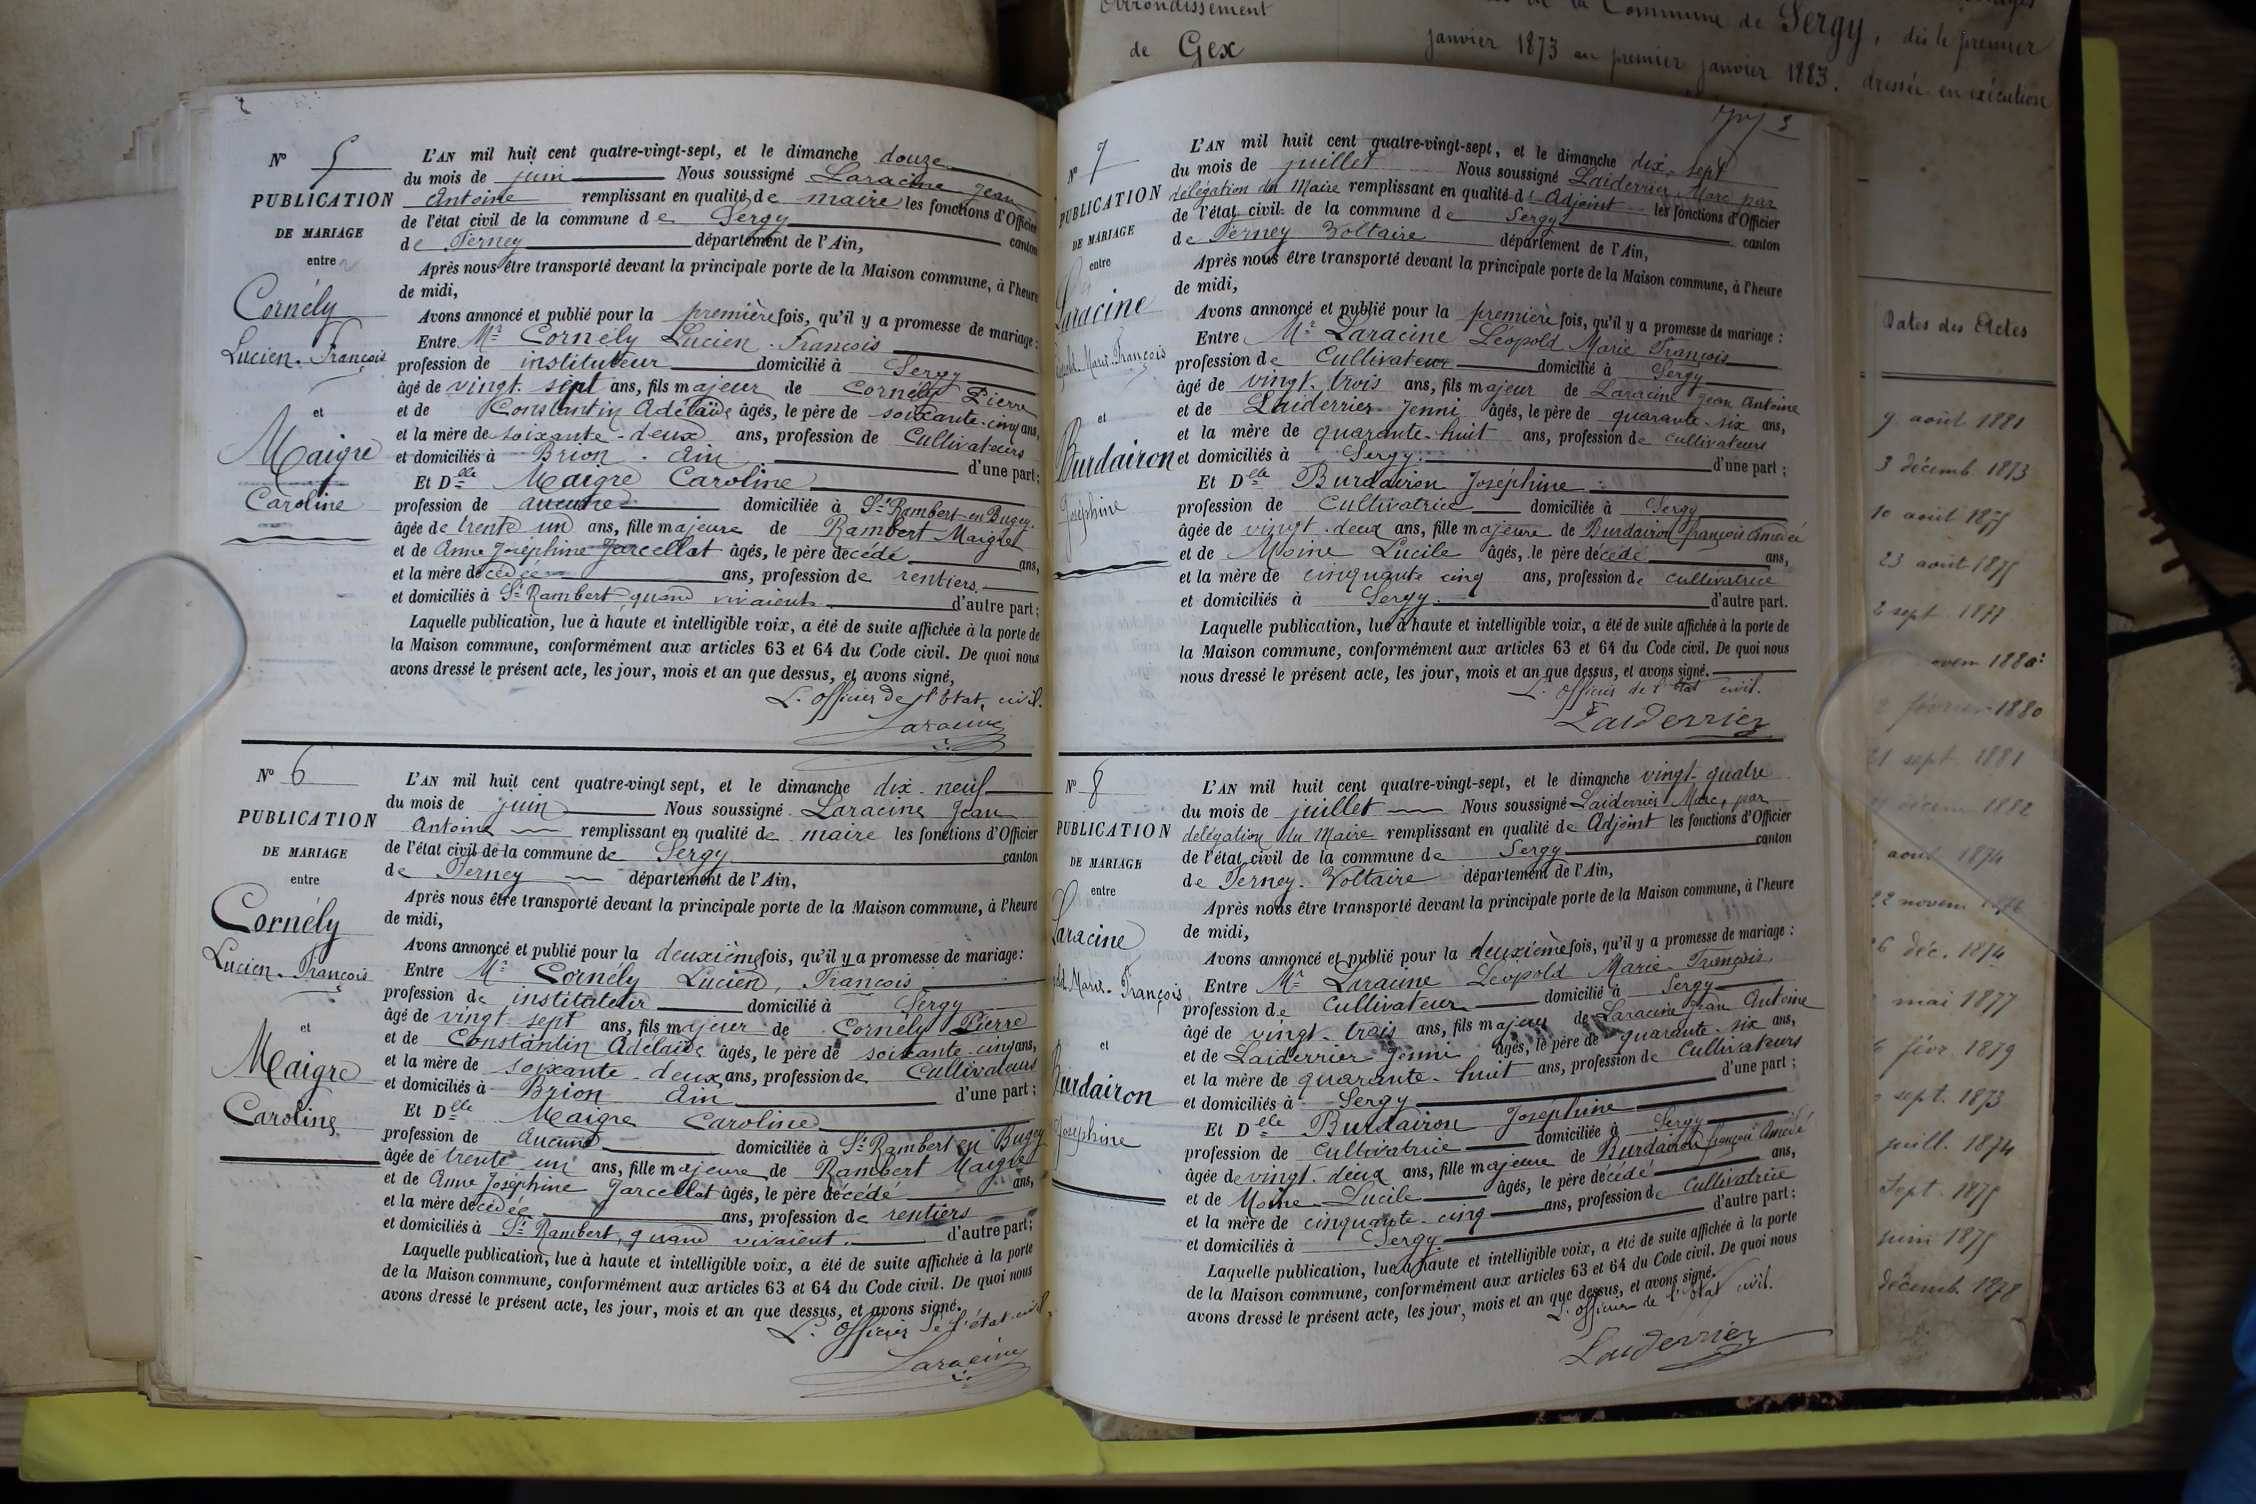 Arrondissement
de Gex
de la Commune de Sergy, dès le premier
janvier 1873 au premier janvier 1883. dressée en exécution
N° 5
PUBLICATION
DE MARIAGE
entre
Cornély
Lucien-François
et
Maigre
Caroline
L'AN mil huit cent quatre-vingt-sept, et le dimanche douze
du mois de juin Nous soussigné Laracine Jean
Antoine remplissant en qualité de maire les fonctions d'Officier
de l'état civil de la commune de Sergy canton
de Ferney département de l'Ain,
Après nous être transporté devant la principale porte de la Maison commune, à l'heure
de midi,
Avons annoncé et publié pour la première fois, qu'il y a promesse de mariage :
Entre Mr Cornély Lucien-François
profession de instituteur domicilié à Sergy
âgé de vingt-sept ans, fils majeur de Cornély Pierre
et de Constantin Adélaïde âgés, le père de soixante-cinq ans,
et la mère de soixante-deux ans, profession de Cultivateurs
et domiciliés à Brion - Ain d'une part ;
Et Delle Maigre Caroline
profession de aucune domiciliée à St Rambert-en-Bugey.
âgée de trente un ans, fille majeure de Rambert Maigre
et de Anne Joséphine Jarcellat âgés, le père décédé ans,
et la mère décédée ans, profession de rentiers
et domiciliés à St Rambert quand vivaient d'autre part ;
Laquelle publication, lue à haute et intelligible voix, a été de suite affichée à la porte de
la Maison commune, conformément aux articles 63 et 64 du Code civil. De quoi nous
avons dressé le présent acte, les jour, mois et an que dessus, et avons signé,
L'officier de l'Etat civil.
Laracine
N° 6
PUBLICATION
DE MARIAGE
entre
Cornély
Lucien-François
et
Maigre
Caroline
L'AN mil huit cent quatre-vingt sept, et le dimanche dix-neuf
du mois de juin Nous soussigné Laracine Jean
Antoine remplissant en qualité de maire les fonctions d'Officier
de l'état civil de la commune de Sergy canton
de Ferney département de l'Ain,
Après nous être transporté devant la principale porte de la Maison commune, à l'heure
de midi,
Avons annoncé et publié pour la deuxième fois, qu'il y a promesse de mariage :
Entre Mr Cornély Lucien, François
profession de instituteur domicilié à Sergy
âgé de vingt sept ans, fils majeur de Cornély Pierre
et de Constantin Adélaïde âgés, le père de soixante-cinq ans,
et la mère de soixante-deux ans, profession de Cultivateurs
et domiciliés à Brion Ain d'une part ;
Et Delle Maigre Caroline
profession de aucune domiciliée à St Rambert en Bugey
âgée de trente un ans, fille majeure de Rambert Maigre
et de Anne Joséphine Jarcellat âgés, le père décédé ans,
et la mère décédée ans, profession de rentiers
et domiciliés à St Rambert, quand vivaient. d'autre part ;
Laquelle publication, lue à haute et intelligible voix, a été de suite affichée à la porte
de la Maison commune, conformément aux articles 63 et 64 du Code civil. De quoi nous
avons dressé le présent acte, les jour, mois et an que dessus, et avons signé.
L'officier de l'état civil,
Laracine
3
N° 7
PUBLICATION
DE MARIAGE
entre
Laracine
Léopold-Marie-François
et
Burdairon
Joséphine
L'AN mil huit cent quatre-vingt-sept, et le dimanche dix-sept
du mois de juillet Nous soussigné Laiderrier Marc par
délégation du Maire remplissant en qualité d'Adjoint les fonctions d'Officier
de l'état civil de la commune de Sergy canton
de Ferney Voltaire département de l'Ain,
Après nous être transporté devant la principale porte de la Maison commune, à l'heure
de midi,
Avons annoncé et publié pour la première fois, qu'il y a promesse de mariage :
Entre Mr Laracine Léopold Marie François
profession de Cultivateur domicilié à Sergy
âgé de vingt-trois ans, fils majeur de Laracine Jean Antoine
et de Laiderrier Jenni âgés, le père de quarante-six ans,
et la mère de quarante-huit ans, profession de cultivateurs
et domiciliés à Sergy. d'une part ;
Et Delle Burdairon Joséphine
profession de Cultivatrice domiciliée à Sergy
âgée de vingt-deux ans, fille majeure de Burdairon françois Amédée
et de Moine Lucile âgés, le père décédé ans,
et la mère de cinquante cinq ans, profession de cultivatrice
et domiciliés à Sergy. d'autre part.
Laquelle publication, lue à haute et intelligible voix, a été de suite affichée à la porte de
la Maison commune, conformément aux articles 63 et 64 du Code civil. De quoi nous
nous dressé le présent acte, les jour, mois et an que dessus, et avons signé.
L'officier de l'Etat civil.
Laiderrier
N° 8
PUBLICATION
DE MARIAGE
entre
Laracine
Marie-François
et
Burdairon
Joséphine
L'AN mil huit cent quatre-vingt-sept, et le dimanche vingt-quatre
du mois de juillet Nous soussigné Laiderrier Marc, par
délégation du Maire remplissant en qualité de Adjoint les fonctions d'Officier
de l'état civil de la commune de Sergy canton
de Ferney-Voltaire département de l'Ain,
Après nous être transporté devant la principale porte de la Maison commune, à l'heure
de midi,
Avons annoncé et publié pour la deuxième fois, qu'il y a promesse de mariage :
Entre Mr Laracine Léopold Marie-François
profession de Cultivateur domicilié à Sergy
âgé de vingt-trois ans, fils majeur de Laracine Jean Antoine
et de Laiderrier Jenni âgés, le père de quarante-six ans,
et la mère de quarante-huit ans, profession de Cultivateurs
et domiciliés à Sergy d'une part ;
Et Delle Burdairon Joséphine
profession de Cultivatrice domiciliée à Sergy
âgée de vingt-deux ans, fille majeure de Burdairon françois Amédé
et de Moine Lucile âgés, le père décédé ans,
et la mère de cinquante-cinq ans, profession de cultivatrice
et domiciliés à Sergy. d'autre part ;
Laquelle publication, lue à haute et intelligible voix, a été de suite affichée à la porte
de la Maison commune, conformément aux articles 63 et 64 du Code civil. De quoi nous
avons dressé le présent acte, les jour, mois et an que dessus, et avons signé.
L'officier de l'Etat civil.
Laiderrier
Dates des Actes
9 août 1881
3 décemb. 1873
10 août 1875
23 août 1875
2 sept. 1877
1880
février 1880
21 sept. 1881
décem 1882
août 1874
22 novem 1876
26 déc. 1874
mai 1877
févr. 1879
sept. 1873
juill. 1874
Sept. 1875
juin 1875
décemb. 1878